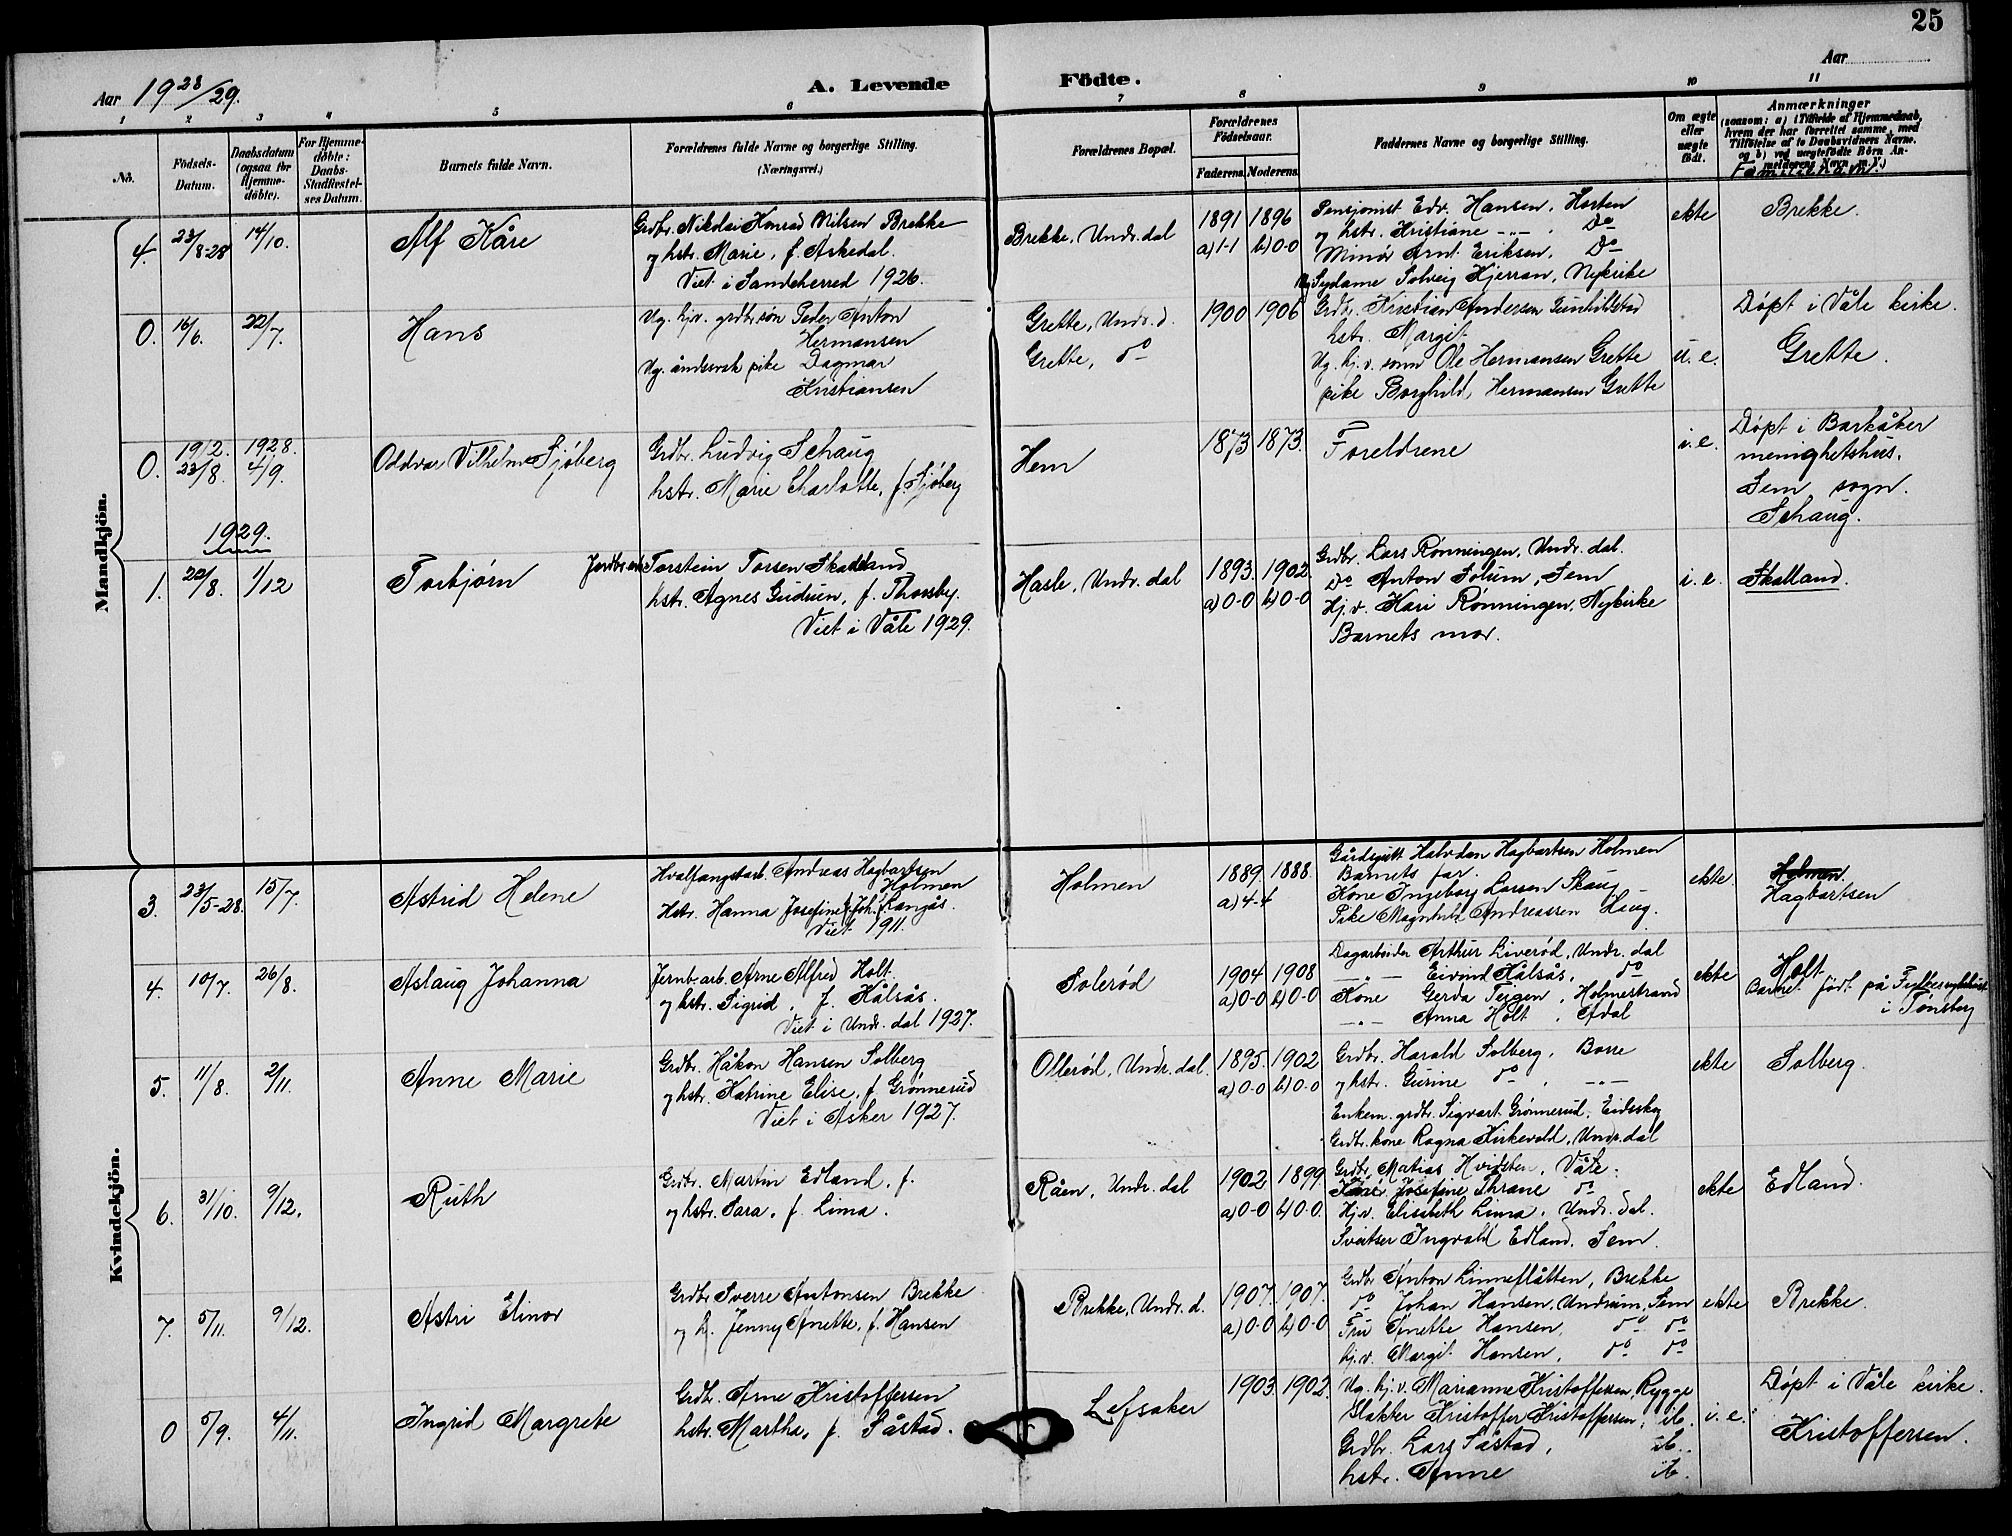 25
Aar 19 28/29.
A. Levende Födte.
Aar
1 2 3 4 5 6 7 8 9 10 11
No.
Födsels-
Datum.
Daabsdatum
(ogsaa for
Hjemme-
döbte).
For Hjemme-
döbte:
Daabs-
Stadfæstel-
ses Datum.
Barnets fulde Navn.
Forældrenes fulde Navne og borgerlige Stilling.
(Næringsvei.)
Forældrenes Bopæl.
Forældrenes
Födselsaar.
Faderens. Moderens.
Faddernes Navne og borgerlige Stilling.
Om ægte
eller
uægte
født.
Anmærkninger
(saasom: a) i Tilfælde af Hjemmedaab,
hvem der har forrettet samme, med
Tilföielse af to Daabsvidners Navne.
og b) ved uægtefödte Börn An-
melderens Navn m. V.)
Familienavn.
Mandkjön.
4. 23/8-28 14/10. Alf Kåre
Grdbr. Nikolai Konrad Nilsen Brekke
og hstr. Marie, f. Askedal.
Viet i Sandeherred 1926.
Brekke, Undr.dal
1891 1896
a) 1-1 b) 0-0
Pensjonist Edv. Hansen, Horten
og hstr. Kristiane -„- , Do
Minör Arnt Eriksen, Do
Sydame Solveig Hjerran, Nykirke
ekte
Brekke.
0. 16/6. 22/7. Hans
Ug. hjv. grdbr.søn Peder Anton
Hermansen
Ug. åndssvak pike Dagmar
Kristiansen
Grette, Undr.d.
Grette, do
1900 1906
Grdbr. Kristian Andersen Gunhildstad
hstr. Margit
Ug. hj.v. sønn Ole Hermansen Grette
pike Borghild, Hermansen Grette
u. e.
Døpt i Våle kirke.
Grette.
0. 1912. 23/8. 1928. 4/9. Oddvar Vilhelm Sjøberg
Grdbr. Ludvig Schaug
hstr. Marie Charlotte, f. Sjøberg
Hem
1873 1873.
Foreldrene
i. e.
Døpt i Barkåker
menighetshus,
Sem sogn.
Schaug.
1929.
1. 22/8. 1/12 Torbjørn
Torstein Torsen Skadland
hstr. Agnes Gudrun, f. Thorsby.
Viet i Våle 1929.
Hasle, Undr.dal
1893. 1902.
a) 0-0 b) 0-0
Grdbr. Lars Rønningen, Undr.dal.
Do Anton Solum, Sem
Hj.v. Kari Rønningen, Nykirke
Barnets mor.
i. e.
Skatland.
Kvindekjön.
3. 23/5-28. 15/7. Astrid Helene
Hvalfangstarb. Andreas Hagbartsen
Holmen
Hstr. Hanna Josefine Joh. f. Langås.
Viet 1911.
Holmen
1889 1888.
a) 4-4
Gårdsgutt Halvdan Hagbartsen Holmen
Barnets far.
Kone Ingeborg Larsen Skaug
Pike Magnhild Andreassen Haug.
ekte.
Holmen.
Hagbartsen
4. 10/7. 26/8. Aslaug Johanna
Jernb.arb. Arne Alfred Holt
og hstr. Sigrid, f. Hålsås.
Viet i Undr.dal 1927.
Solerød
1904 1908
a) 0-0 b) 0-0
Dagarbeider Arthur Liverød, Undr.dal
-„- Eivind Hålsås, do
Kone Gerda Teigen, Holmestrand
-„- Anna Holt, Adal
ekte
Holt
Barnet født på
i Tønsberg
5. 11/8. 2/11. Anne Marie
Grdbr. Håkon Hansen Solberg
og hstr. Katrine Elise, f. Grønnerud
Viet i Asker 1927.
Ollerød, Undr.dal.
1895. 1902
a) 0-0 b) 0-0
Grdbr. Harald Solberg, Borre
og hstr. Gurine do , -„-
Enkem. grdbr. Sigvart Grønnerud, Eidsskog
Grdbr. kone Ragna Kirkevold, Undr.dal
ekte
Solberg.
6. 31/10. 9/12. Ruth
Grdbr. Martin Edland, f.
og hstr. Sara, f. Lima.
Råen, Undr.dal
1902 1899.
a) 0-0 b) 0-0.
Grdbr. Matias Hvidsten, Våle.
Josefine Thrane do
Hj.v. Elisabeth Lima, Undr.dal.
Sveitser Ingvald Edland, Sem.
ekte
Edland.
7. 5/11. 9/12. Astri Elinor
Grdbr. Sverre Antonsen Brekke
og h. Jenny Anette, f. Hansen
Brekke, Undr.d.
1907. 1907.
a) 0-0 b) 0-0
Grdbr. Anton Linneflåtten, Brekke
do Johan Hansen, Undrum, Sem
Fru Anette Hansen, do do
hj.v. Margit Hansen, do do
ekte
Brekke.
0 5/9. 4/11. Ingrid Margrete
Grdbr. Arne Kristoffersen
hstr. Martha, f. Såstad.
Lefsaker
1903. 1902.
Ug. hj.v. Marianne Kristoffersen, Rygge
Slakter Kristoffer Kristoffersen, ib.
Grdbr. Lars Såstad, ib.
hstr. Anne ib.
i. e.
Døpt i Våle kirke.
Kristoffersen.